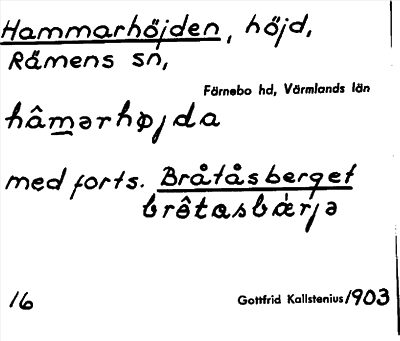 Hammarhöjden, höjd,
Råmens sn,
Färnebo hd, Värmlands län
hâmərhøjda
med forts. Bråtåsberget
brôtasbǽrjə
16 Gottfrid Kallstenius 1903